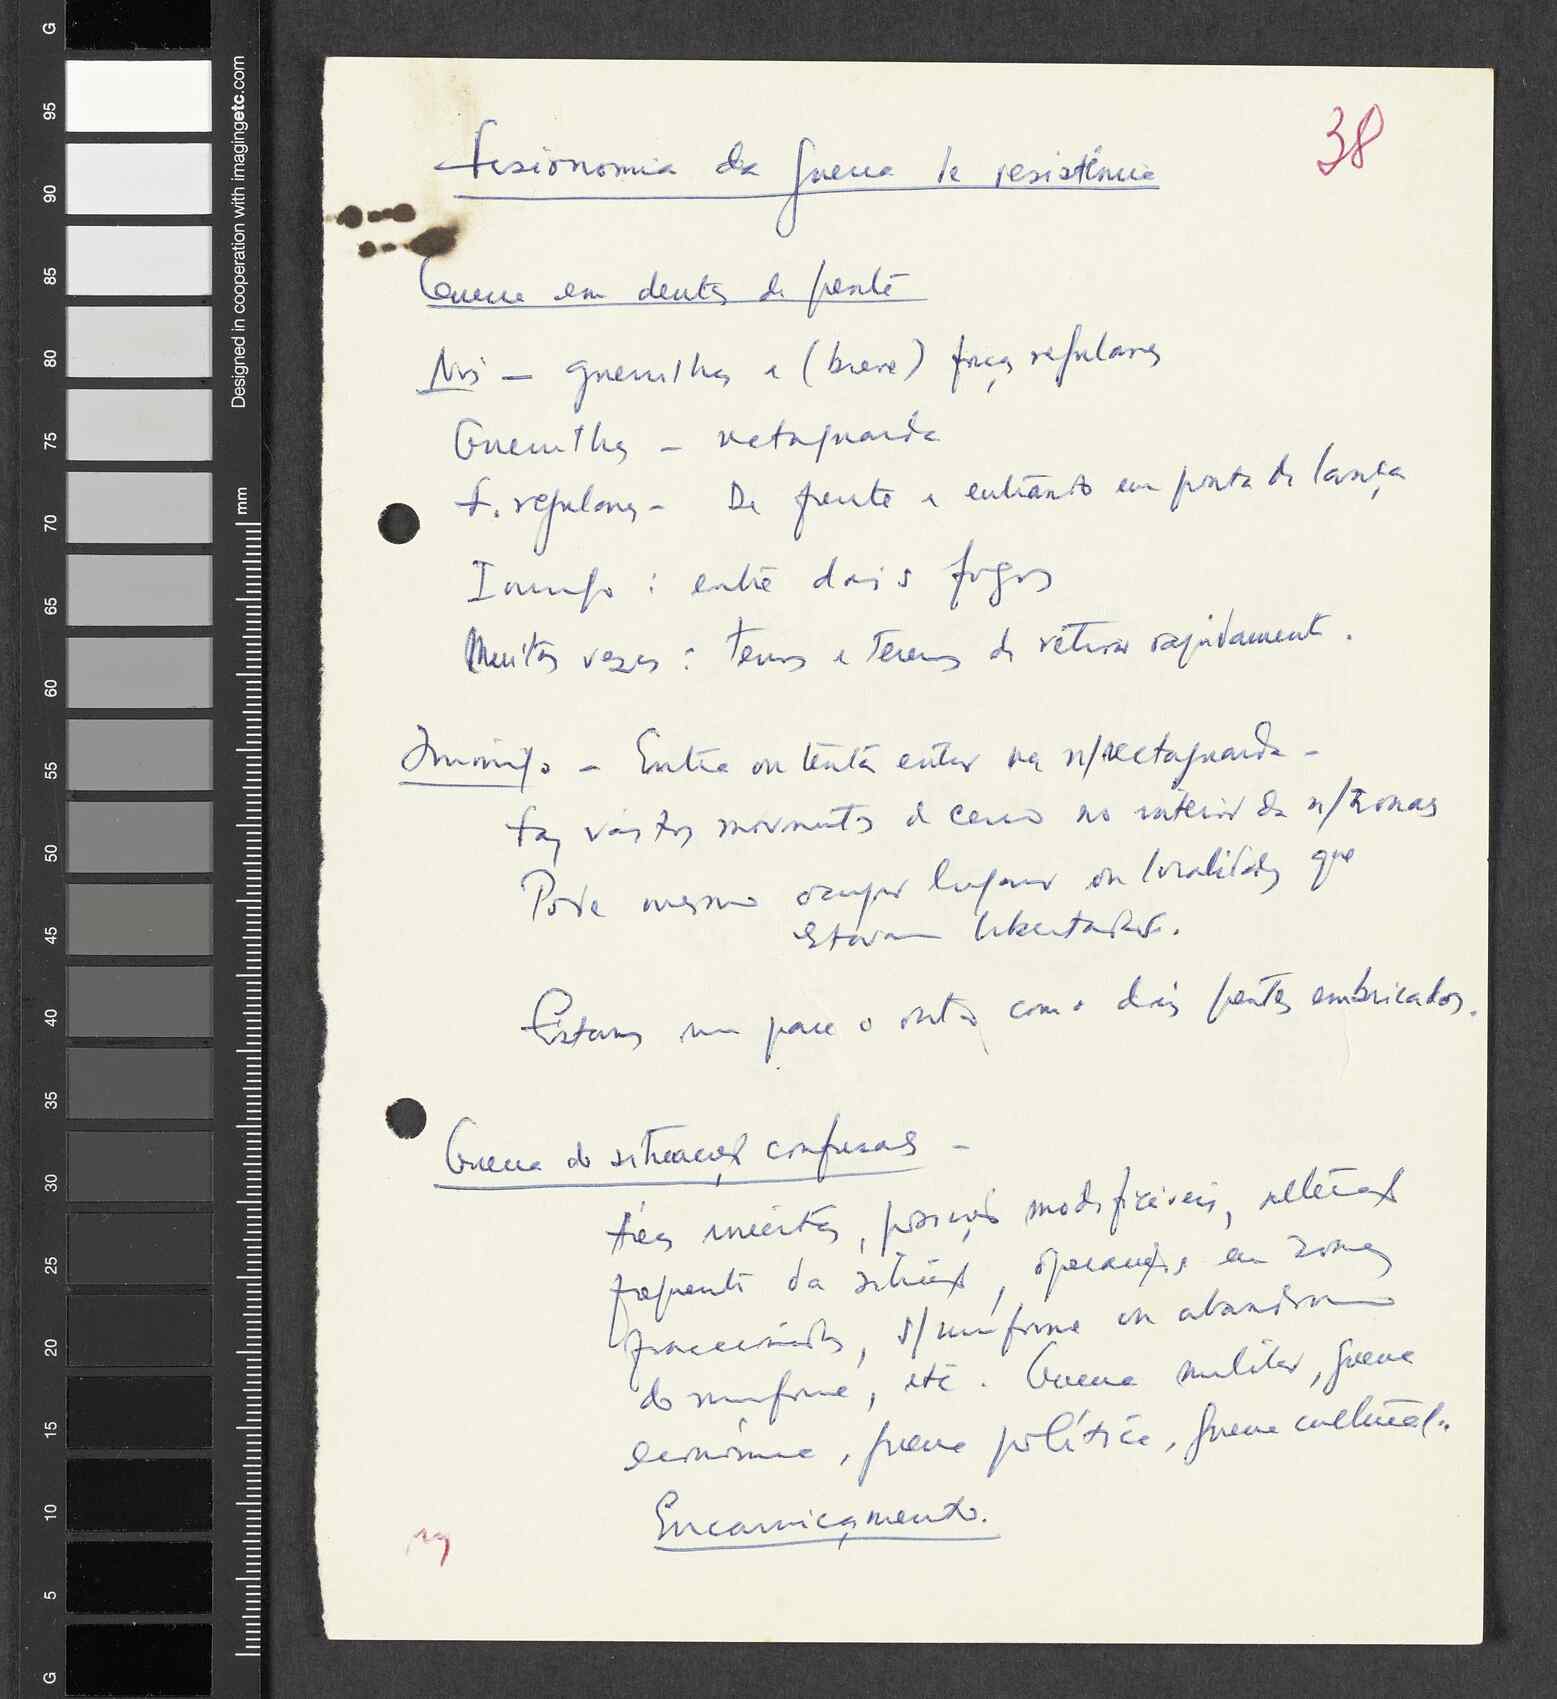 38
Fisionomia da guerra de resistência
Guerra em dentes de pente
Nós — guerrilhas e (breve) forças regulares
Guerrilhas — rectaguarda
F. regulares — De frente e entrando em ponta de lança
Inimigo : entre dois fogos
Muitas vezes : temos e teremos de retirar rapidamente .
Inimigo — Entra ou tenta entrar na n/ rectaguarda —
Faz vastos movimentos de cerco no interior da n/ zonas
Pode mesmo ocupar lugares ou localidades que
estavam libertadas.
Estamos um para o outro como dois pentes embricados.
Guerra de situações confusas —
incertas, posições modificáveis,
frequente da situação, operações em zonas
s/ uniforme ou abandono
do uniforme, etc. Guerra militar, guerra
económica, guerra política, guerra cultural.
Encarniçamento.
Designed in cooperation with imagingetc.com
mm
G
95
90
85
80
75
70
65
60
55
50
45
40
35
30
25
20
15
10
5
G